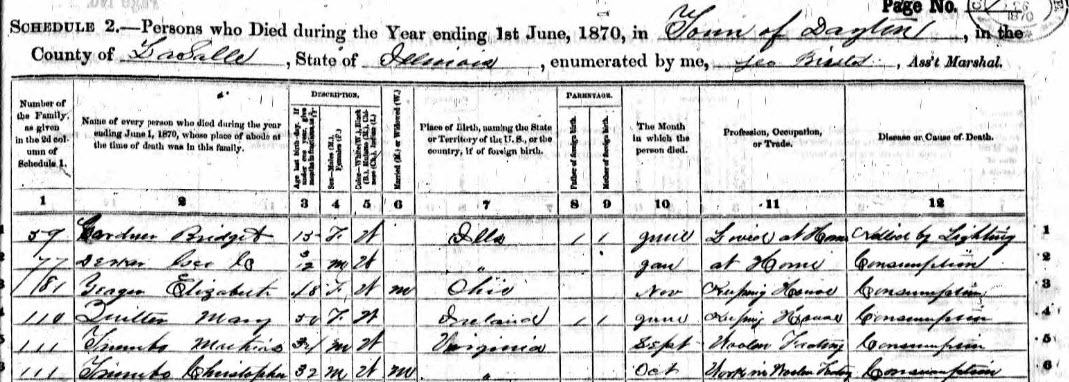 Page No.
SCHEDULE 2.—Persons who Died during the Year ending 1st June, 1870, in Town of Dayton, in the
County of LaSalle, State of Illinois, enumerated by me, Geo, Ass't Marshal.
Number of the Family, as given in the 2d column of Schedule 1.
Name of every person who died during the year ending June 1, 1870, whose place of abode at the time of death was in this family.
DESCRIPTION.
Married (M.) or Widowed (W.)
Place of Birth, naming the State or Territory of the U. S., or the country, if of foreign birth.
PARENTAGE.
Father of foreign birth.
Mother of foreign birth.
The Month in which the person died.
Profession, Occupation, or Trade.
Disease or Cause of Death.
1 2 3 4 5 6 7 8 9 10 11 12
1 59 Gardner Bridget 15 F. W Ills 1 1 June at Home Killed by Lighting 1
2 77 Geo M W " Jan at Home Consumption 2
3 81 Yeager Elizabeth 48 F. W M Ohio Nov Keeping House Consumption 3
4 110 Quilter Mary 50 F. W Ireland 1 1 June Keeping House Consumption 4
5 111 Trumbo Mathias 34 M W Virginia Sept Woolen Consumption 5
6 111 Trumbo Christopher 32 M W M " Oct Works in Woolen Consumption 6